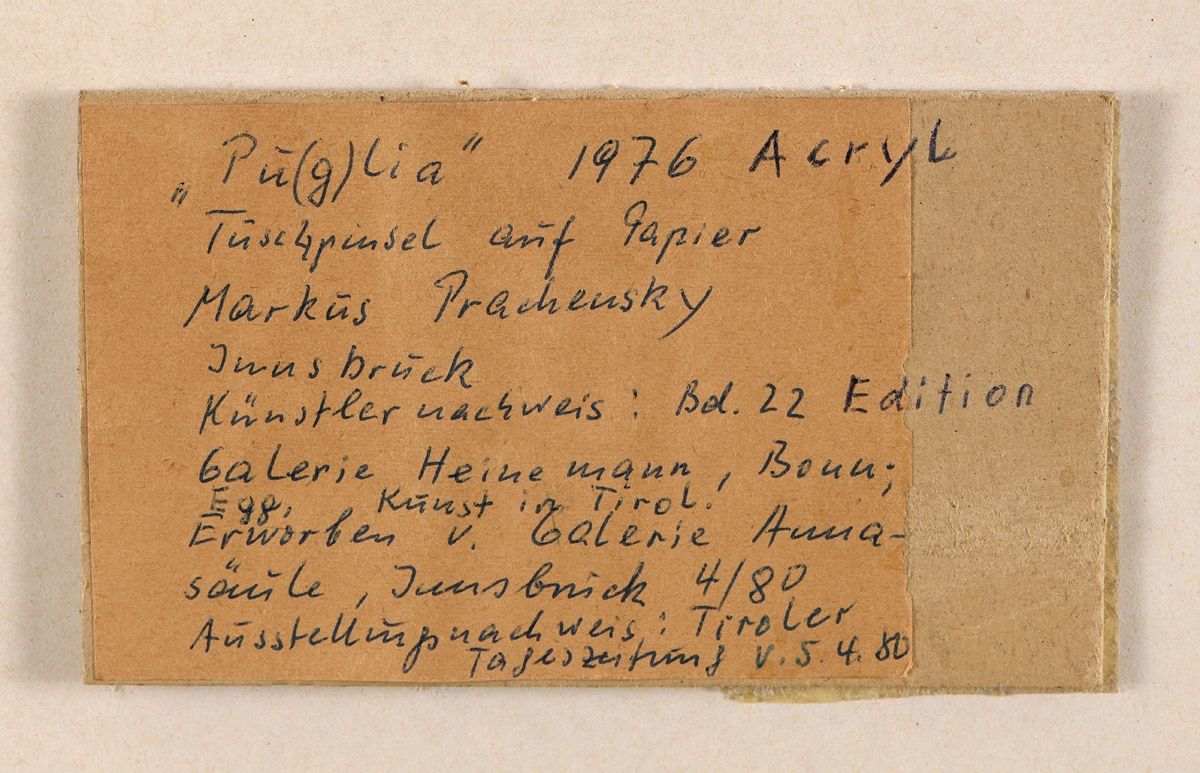 „Pu(g)lia" 1976 Acryl
Tuschpinsel auf Papier
Markus Prachensky
Innsbruck
Künstlernachweis: Bd. 22 Edition
Galerie Heinemann, Bonn;
Egg, Kunst in Tirol.
Erworben v. Galerie Anna-
säule, Innsbruck 4/80
Ausstellungsnachweis: Tiroler
Tageszeitung v. 5. 4. 80